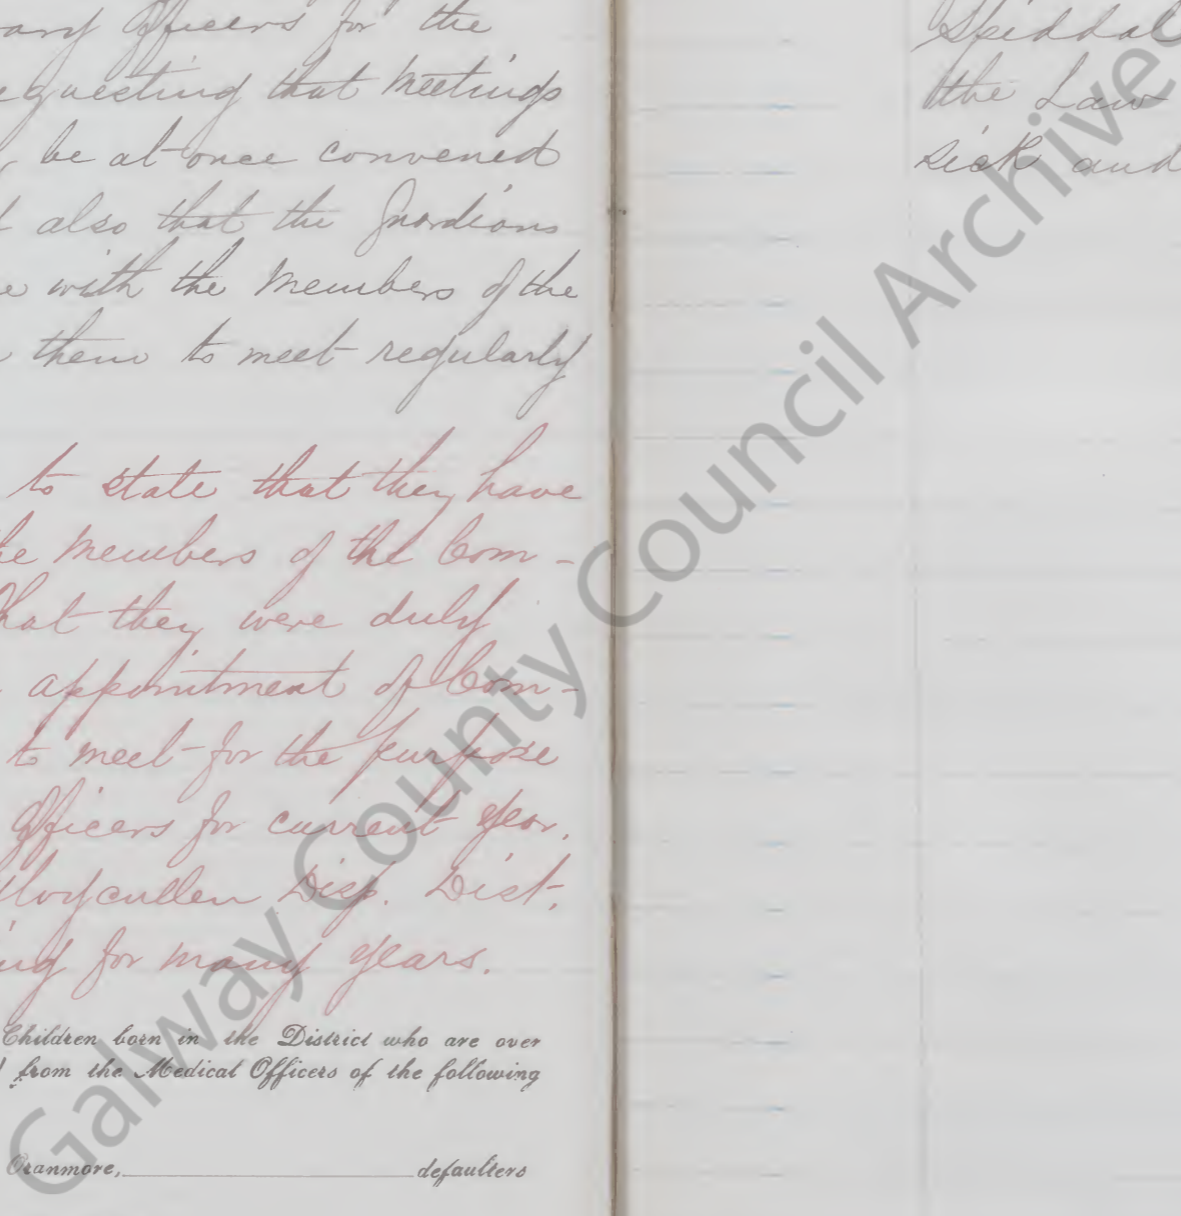 Officers for the
questing that meetings
be at once convened
also that the Guardians
with the Members of the
them to meet regularly
to state that they have
Members of the Com-
that they were duly
appointment of Com-
to meet for the purpose
Officers for current year.
Moycullen Disp. Dist.
for many years.
Children born in the District who are over
from the Medical Officers of the following
Oranmore, defaulters
Spiddal
the Law
sick and
Galway County Council Archives